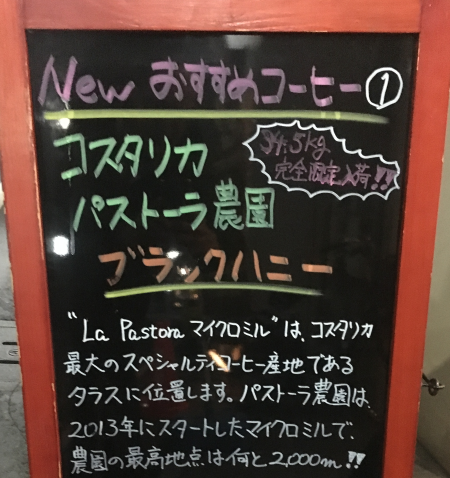 New おすすめコーヒー①
34.5kg
完全限定入荷!!
コスタリカ
パストーラ農園
ブラックハニー
"La Pastora マイクロミル"は、コスタリカ
最大のスペシャルティコーヒー産地である
タラスに位置します。パストーラ農園は、
2013年にスタートしたマイクロミルで、
農園の最高地点は何と2,000m!!